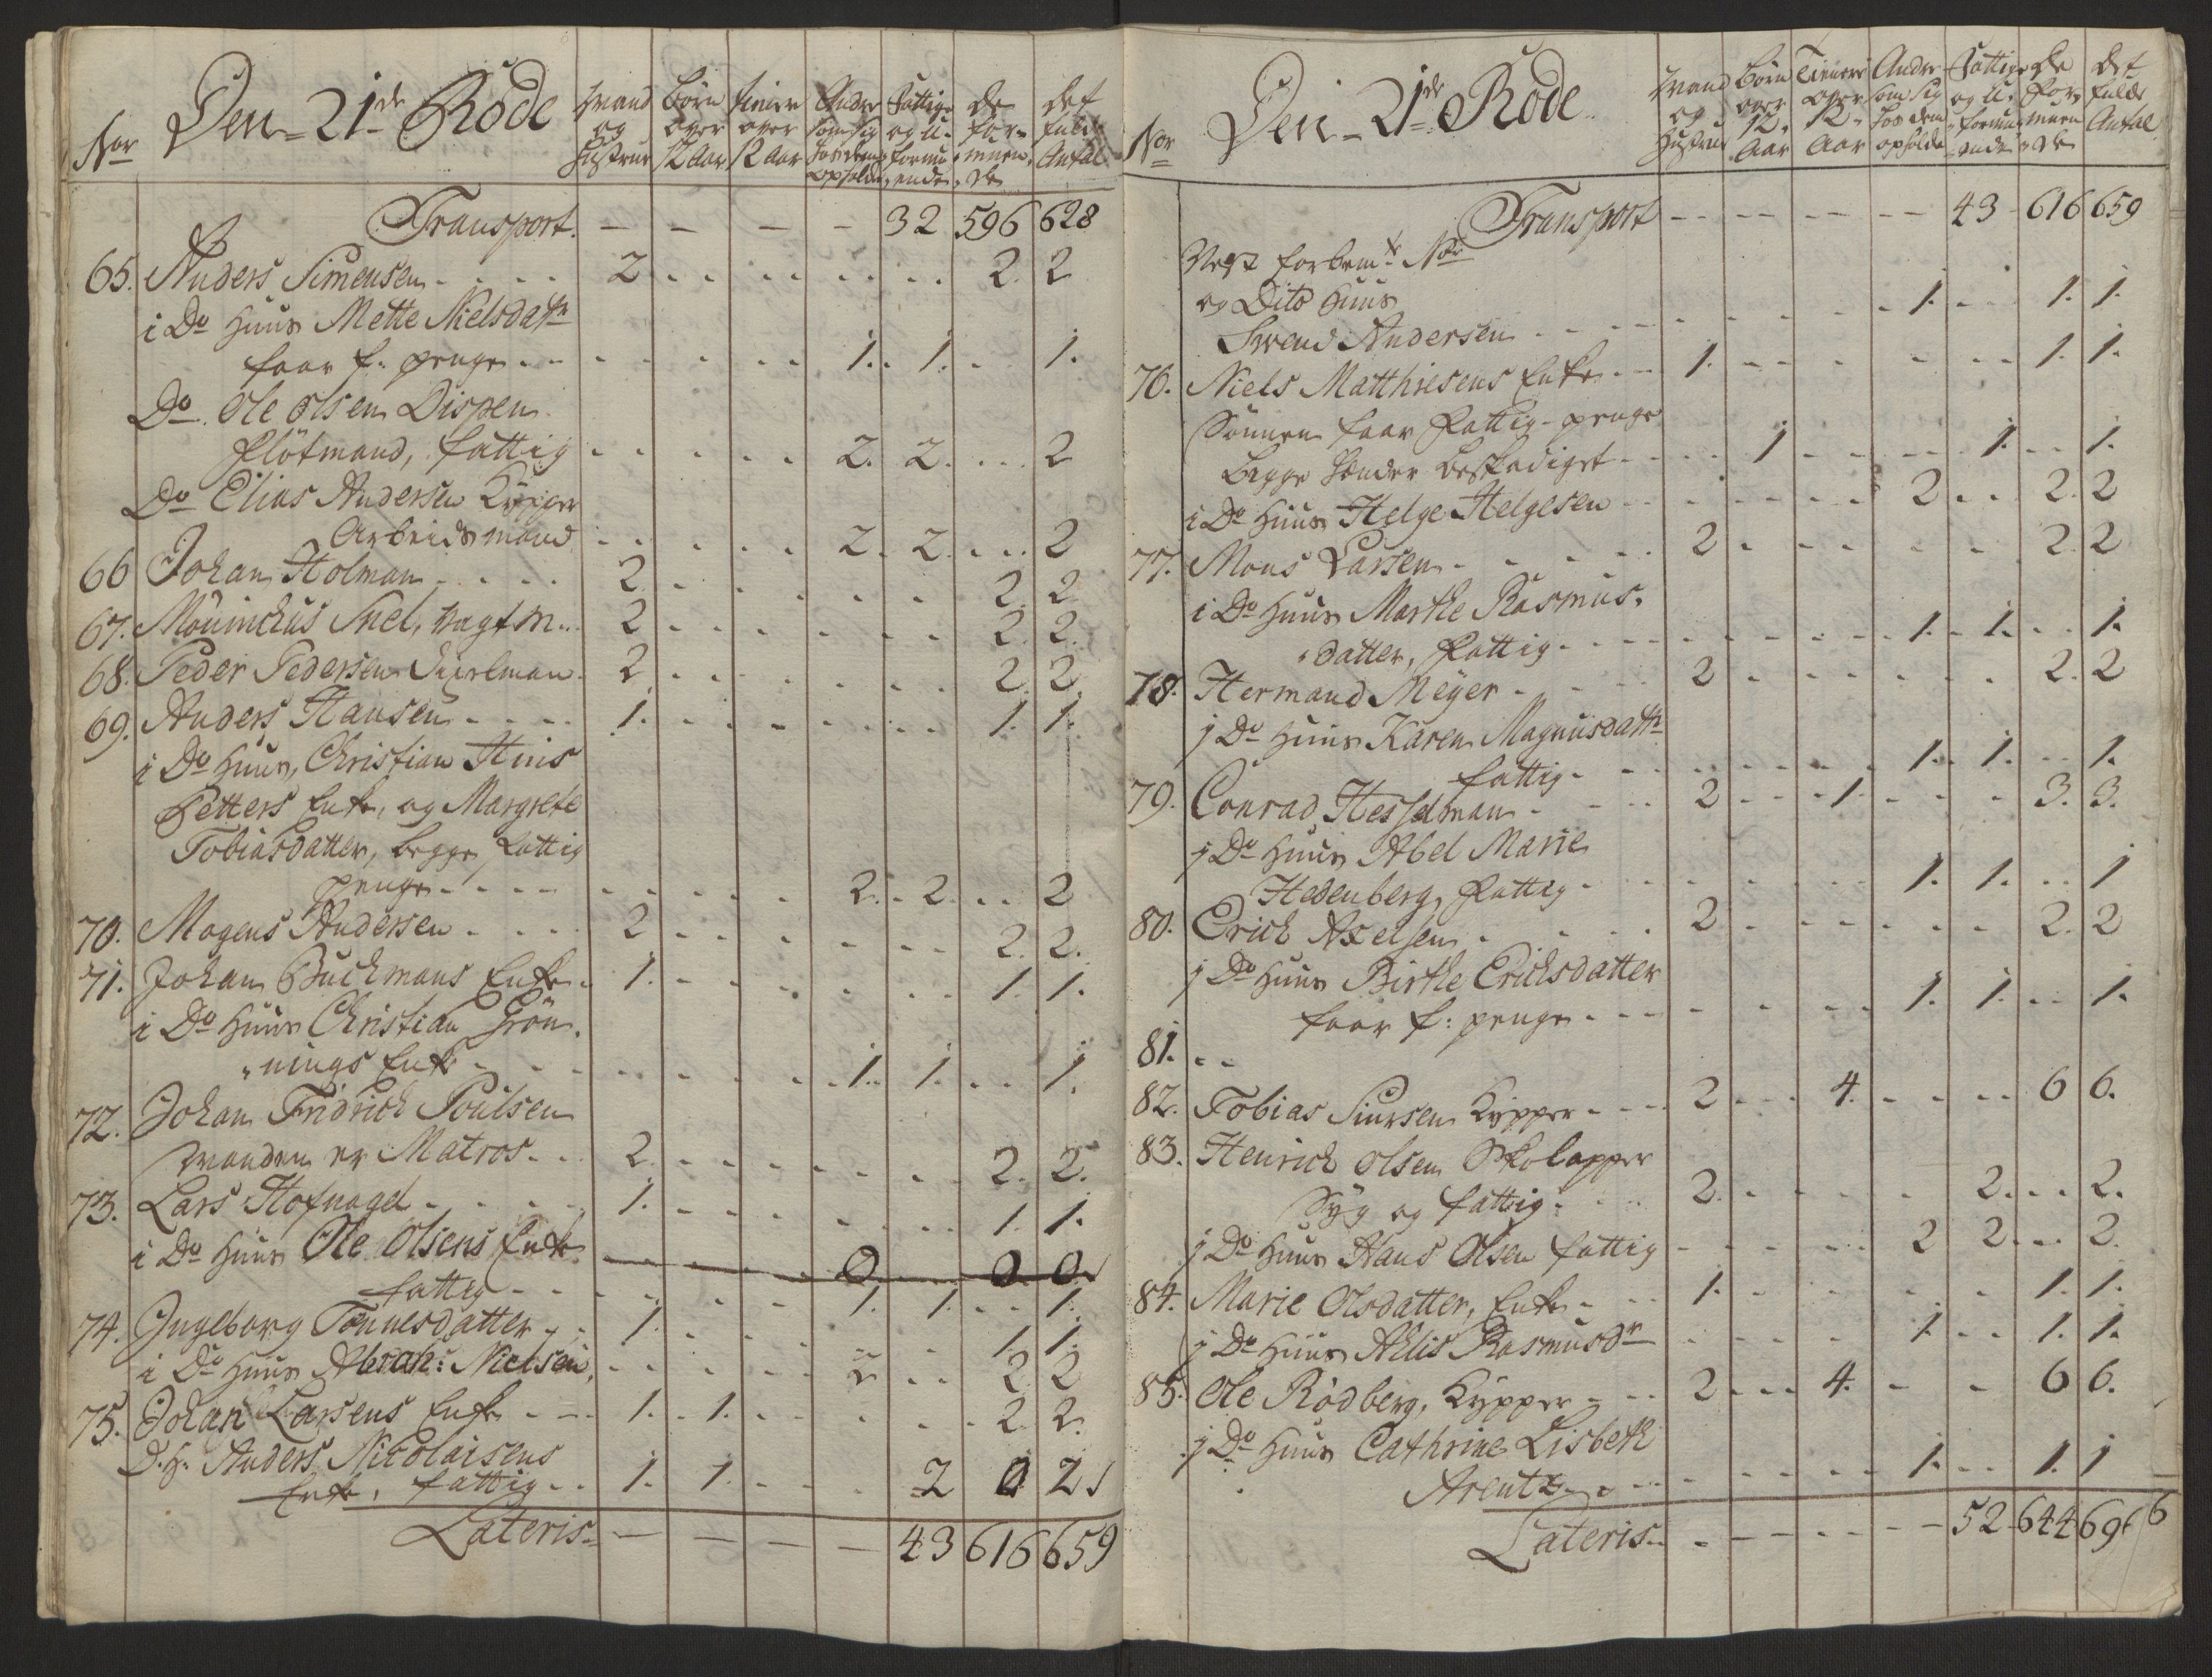 Nor Den 21de Rode Mand og Hustrue Børn over 12 Aar Tiener over 12 Aar Andre som sig hos dem opholde Fattige og U-formuende De Formuende Det fulde Antal
Transport. - - - - 32 596 628
65. Anders Simensen 2 2. 2
i Do Huus Mette Nielsdatr
faar f. penge 1. 1. 1.
Do Ole Olsen Dispen
Flötmand, fattig 2. 2. 2
Do Elias Andersen Kypper
Arbeidsmand 2. 2. 2
66 Johan Holman 2. 2. 2.
67. Mouinckus Snel, Vagtm. 2 2. 2.
68. Peder Pedersen 2 2. 2.
69. Anders Hansen 1. 1. 1.
i Do Huus, Christian Hius
Petters Enke, og Margrete
Tobiasdatter, begge Fattig
penge 2. 2. 2
70. Mogens Andersen 2 2. 2.
71. Johan Buchmans Enke 1. 1. 1.
i Do Huus Christian Grön-
nings Enke 1. 1. 1.
72. Johan Fridrich Poulsen
Manden er Matros 2. 2. 2.
73. Lars Hofnagel 1. 1. 1.
i Do Huus Ole Olsens Enke 0 0 0
fattig 1. 1. 1.
74. Ingeborg Tonnesdatter 1. 1. 1.
i Do Huus Abrah: Nielsen 2 2. 2
75. Johan Larsens Enke 1. 1. 2. 2.
D. H. Anders Nicolaisens
Enke, fattig 1. 1. 2 0 2
Lateris - - - - 43 616 659
Nor Den 21de Rode Mand og Hustrue Børn over 12 Aar Tienere over 12 Aar Andre som sig hos dem opholde Fattige og U-formuende De Formuende Det fulde Antal
Transport - - - - 43 616 659
Next forbemte Nor
og Dito Huus 1. 1. 1.
Swend Andersen
76. Niels Matthiesens Enke 1. 1. 1.
Sönnen faar Fattig-penge
begge Hænder beskadiget 1 1. 1.
i Do Huus Helge Helgesen 2 2. 2
77. Mons Larsen 2 2. 2
i Do Huus Marthe Rasmus-
datter, Fattig 1. 1. 1.
78. Hermand Meyer 2 2. 2
j Do Huus Karen Magnusdatr
fattig 1. 1. 1.
79. Conrad Hesselman 2 1. 3. 3.
j Do Huus Abel Marie
Hedenberg, Fattig 1. 1. 1
80. Erich Axelsen 2 2. 2
j Do Huus Birthe Erichsdatter
faar f: penge 1. 1. 1.
81.
82. Tobias Siursen Kypper 2 4. 6 6.
83. Henrich Olsen Skolapper
Syg og fattig 2. 2. 2.
j Do Huus Hans Olsen fattig 2 2. 2.
84. Marie Olsdatter, Enke 1. 1. 1.
j Do Huus Ahlis Rasmusdr 1. 1. 1.
85. Ole Rödberg, Kypper 2 4. 6 6.
j Do Huus Cathrine Lisbeth
Arentz 1. 1. 1
Lateris - - - - 52 644 696